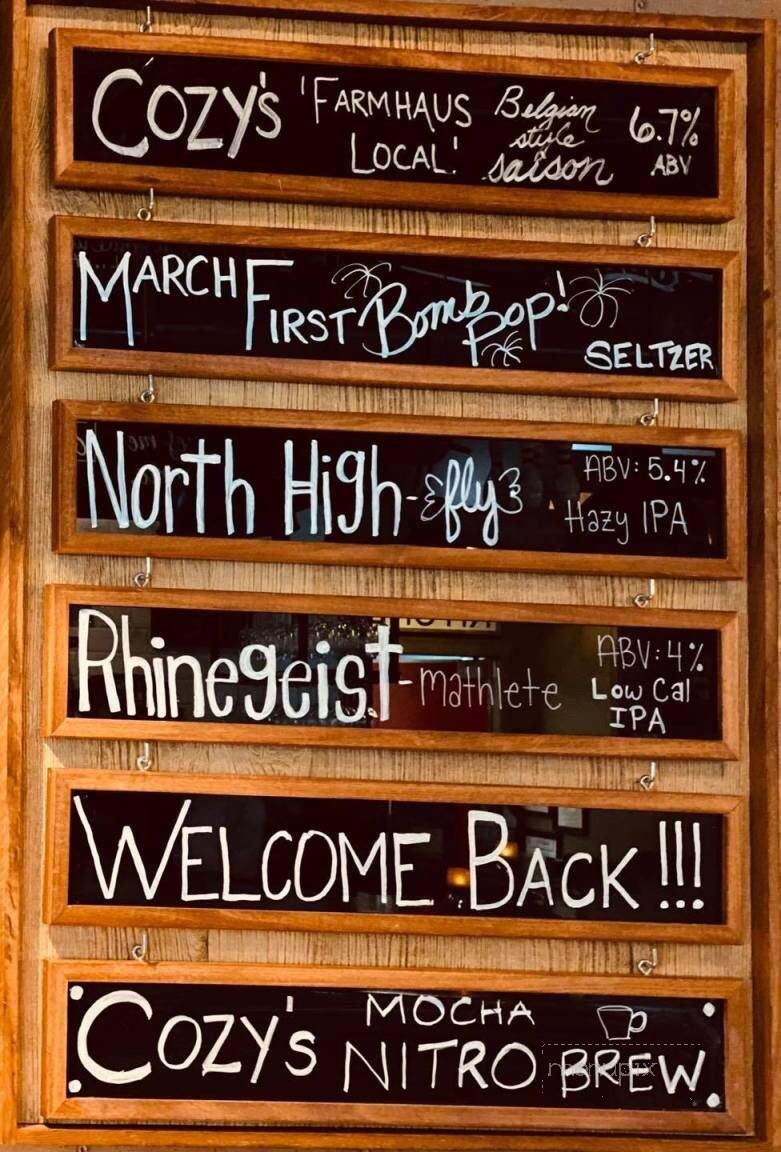 COZY'S 'FARMHAUS LOCAL' Belgian style saison 6.7% ABV
MARCH FIRST Bomb Pop! SELTZER
North High - fly ABV: 5.4% Hazy IPA
Rhinegeist - mathlete ABV: 4% Low Cal IPA
WELCOME BACK!!!
COZY'S MOCHA NITRO BREW